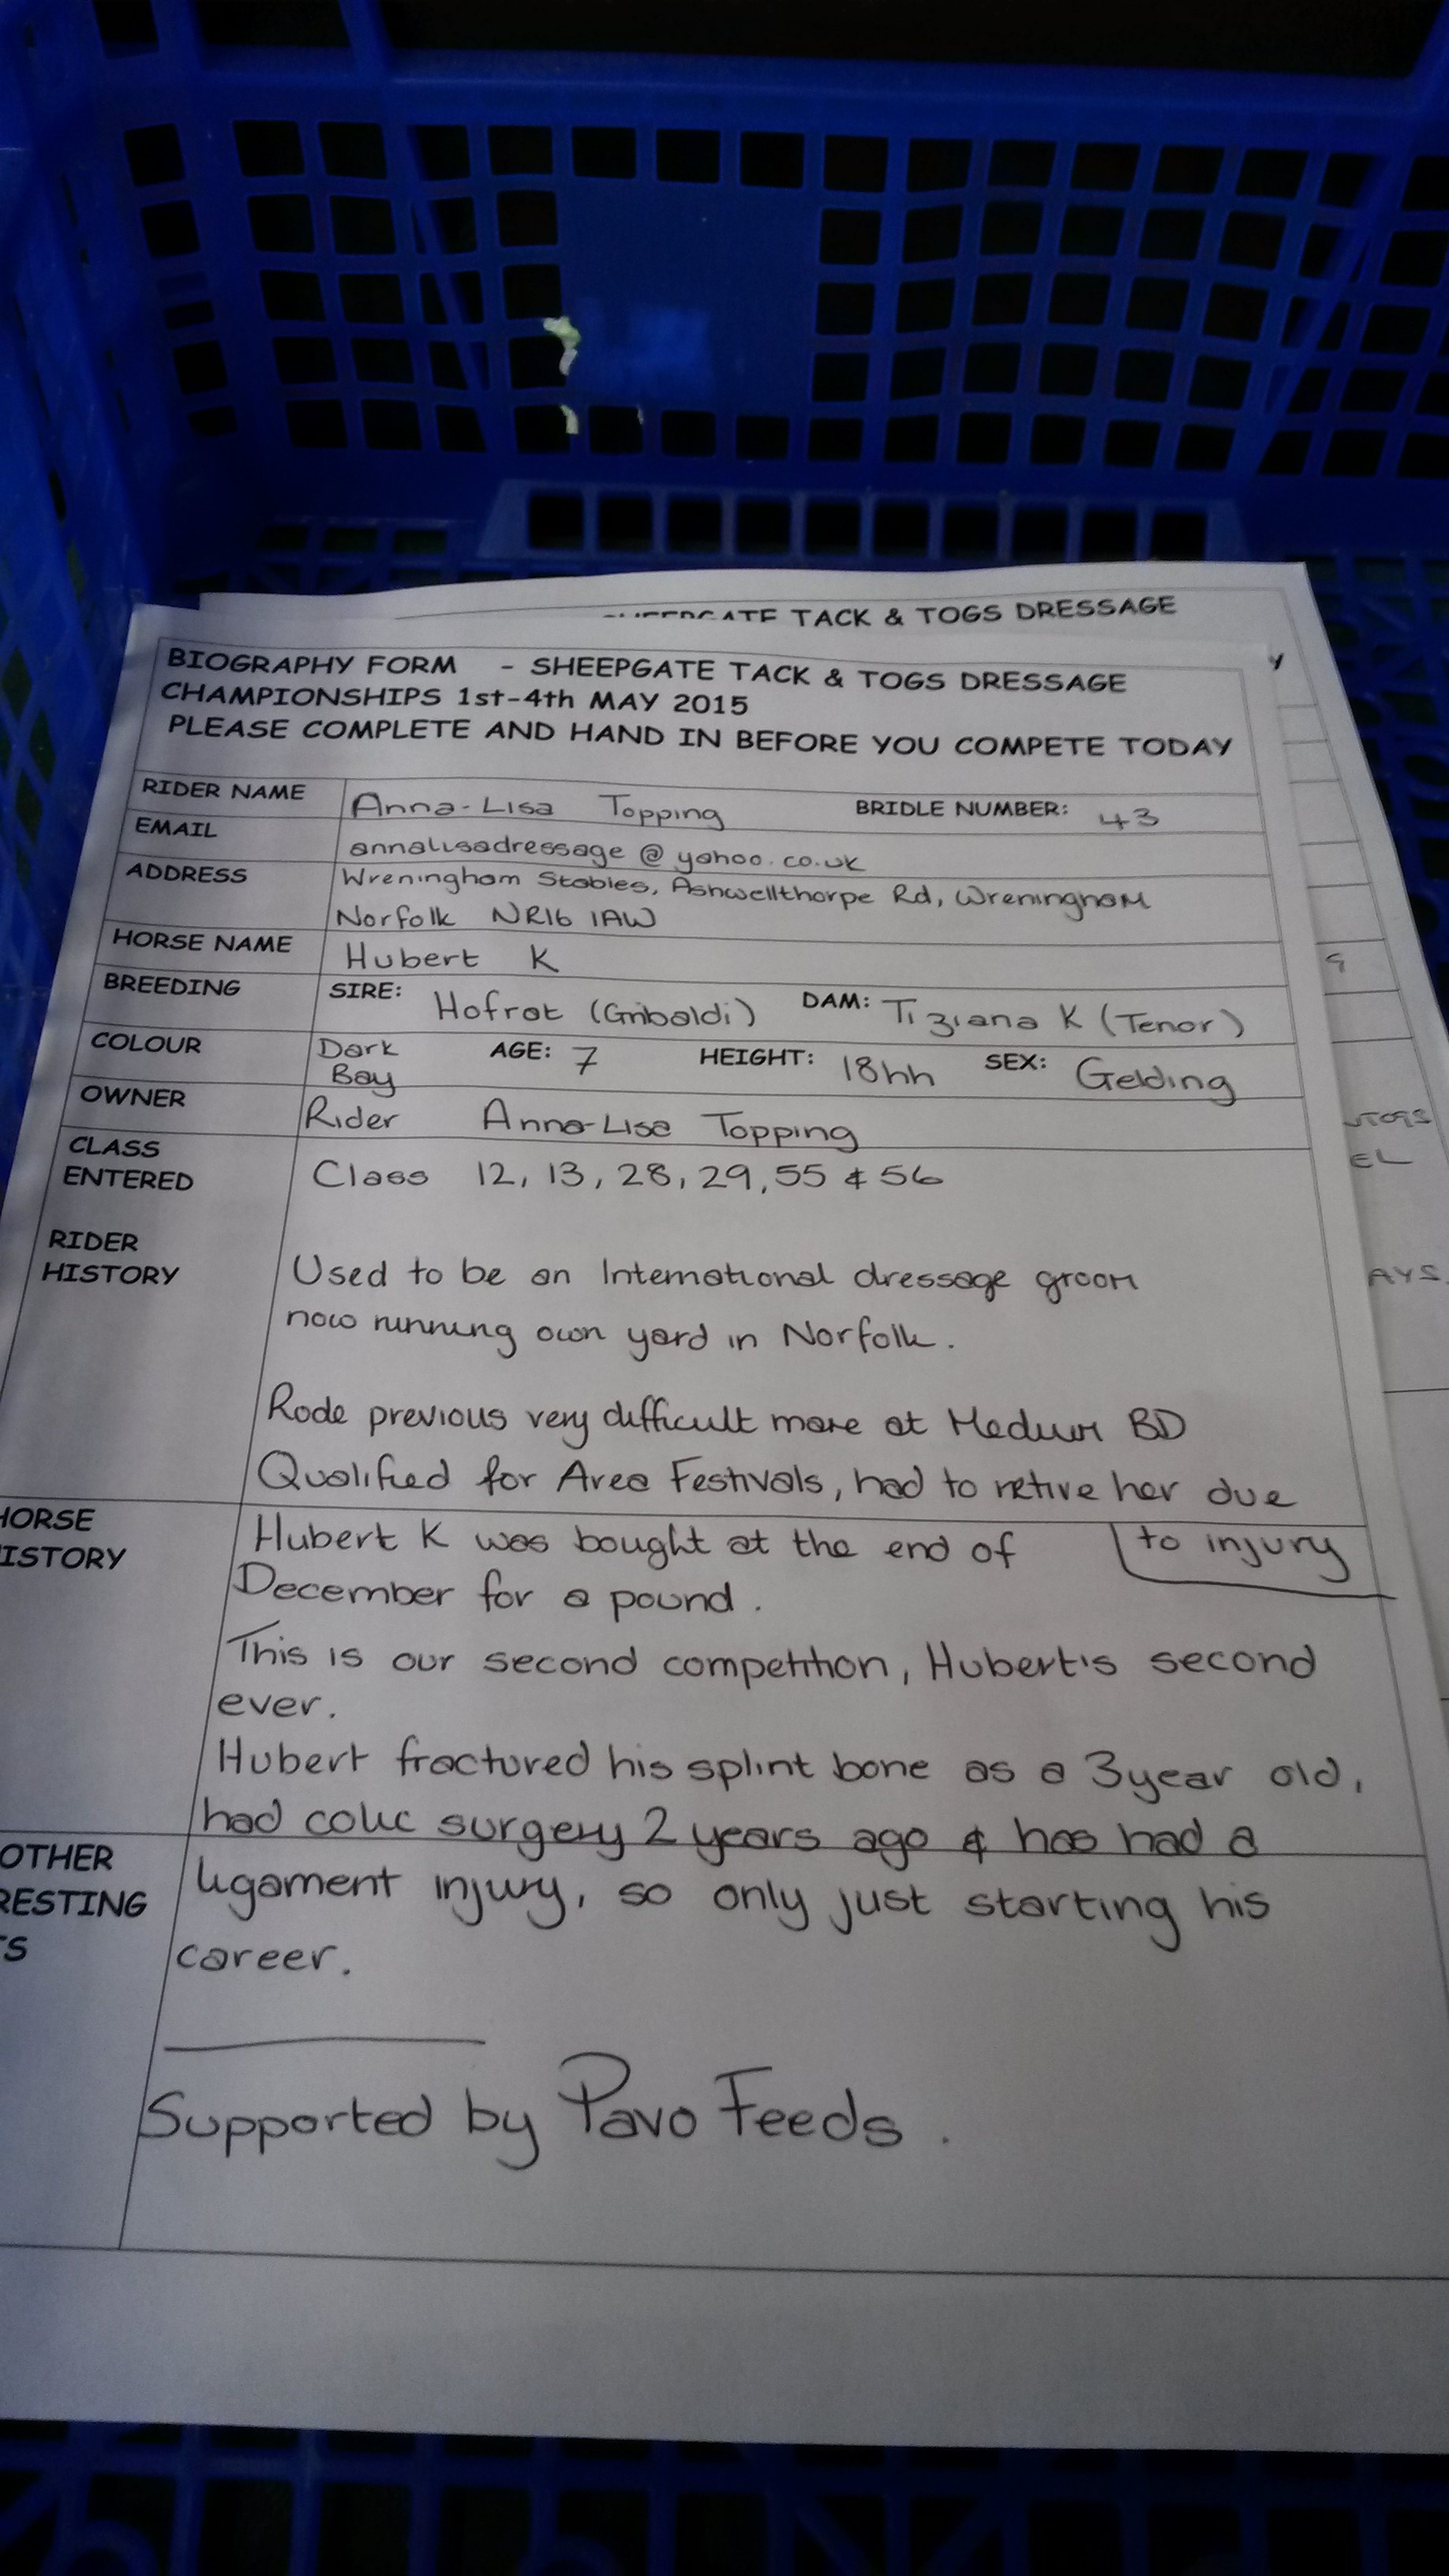 TACK & TOGS DRESSAGE
BIOGRAPHY FORM - SHEEPGATE TACK & TOGS DRESSAGE
CHAMPIONSHIPS 1st-4th MAY 2015
PLEASE COMPLETE AND HAND IN BEFORE YOU COMPETE TODAY
RIDER NAME Anna-Lisa Topping BRIDLE NUMBER: 43
EMAIL annalisadressage@yahoo.co.uk
ADDRESS Wreningham Stables, Ashwellthorpe Rd, Wreningham
Norfolk NR16 1AW
HORSE NAME Hubert K
BREEDING SIRE: Hofrat (Gribaldi) DAM: Tiziana K (Tenor)
COLOUR Dark Bay AGE: 7 HEIGHT: 18hh SEX: Gelding
OWNER Rider Anna-Lisa Topping
CLASS
ENTERED Class 12, 13, 28, 29, 55 & 56
RIDER
HISTORY Used to be an International dressage groom
now running own yard in Norfolk.
Rode previous very difficult mare at Medium BD
Qualified for Area Festivals, had to retire her due
to injury
HORSE Hubert K was bought at the end of
ISTORY December for a pound.
This is our second competition, Hubert's second
ever.
Hubert fractured his splint bone as a 3 year old,
had colic surgery 2 years ago & has had a
OTHER
RESTING ligament injury, so only just starting his
TS career.
Supported by Pavo Feeds.